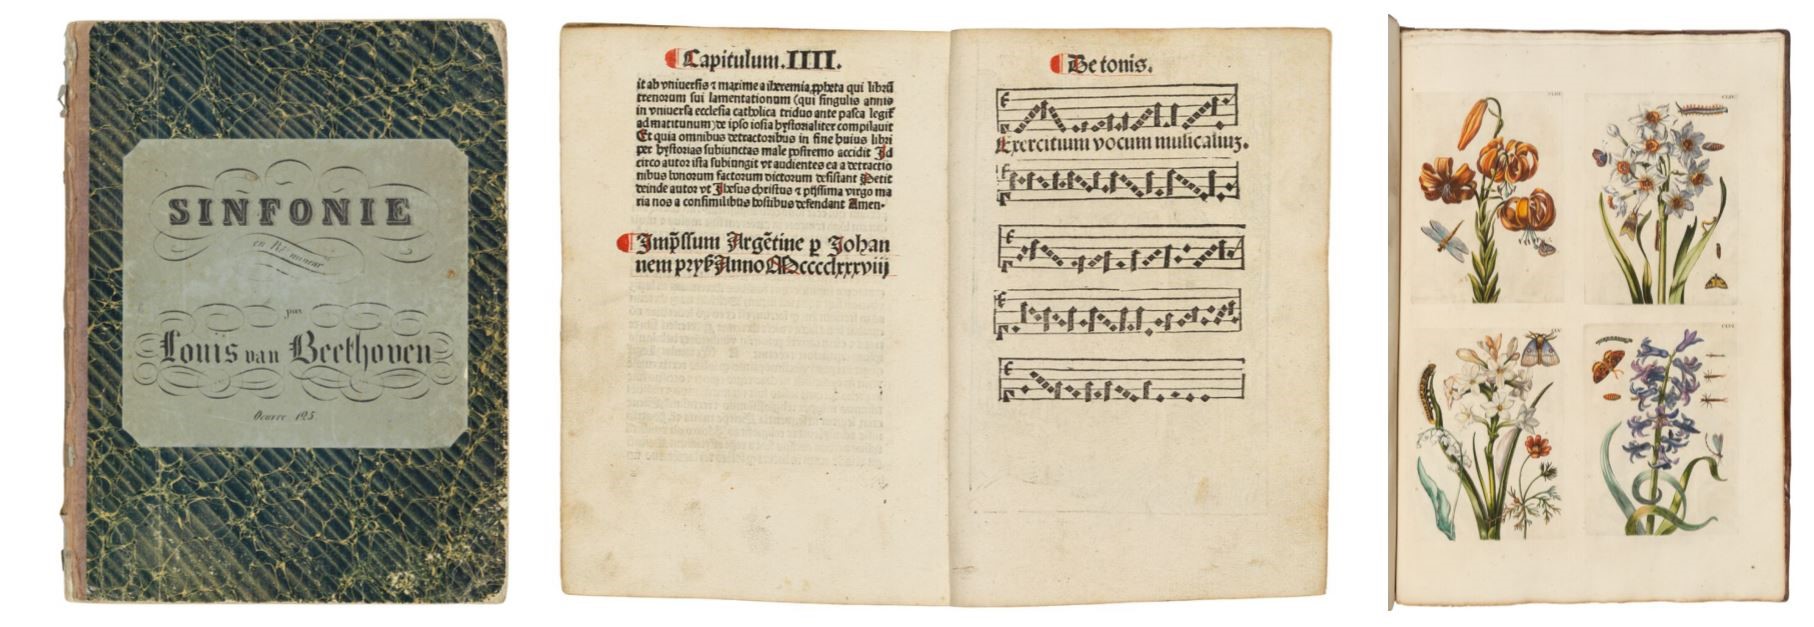 SINFONIE
en Ré mineur
par
Louis van Beethoven
Oeuvre 125
Capitulum.IIII.
it ab vniuersis ⁊ maxime a iheremia ꝓpheta qui librū
trenorum sui lamentationum (qui singulis annis
in vniuersa ecclesia catholica triduo ante pasca legit᷑
ad matutinum) de ipso iosia hystorialiter compilauit
Et quia omnibus detractoribus in fine huius libri
per hystorias subiunctas male postremo accidit Id
circo autor ista subiungit vt audientes ea a detractio
nibus bonorum factorum dictorum desistant Petit
deinde autor vt Jhesus christus ⁊ piissima virgo ma
ria nos a consimilibus hostibus defendant Amen.
Imp̄ssum Argētine ꝑ Johan
nem pryß Anno Mcccclxxxviij
De tonis.
Exercitium vocum musicaliuȝ.